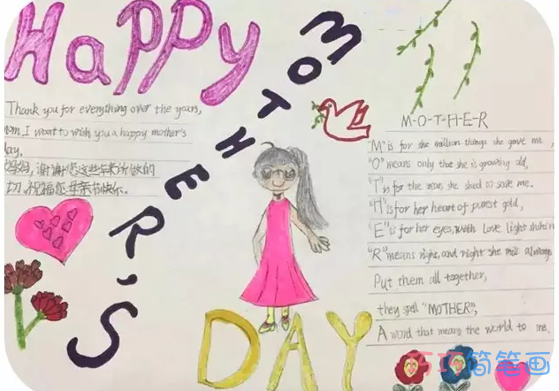 HaPPy
MOTHER'S
DAY
Thank you for everything over the years,
mom, I want to wish you a happy mother's
day,
妈妈,谢谢您这些年来所做的
一切.祝福您母亲节快乐.
M-O-T-H-E-R
"M" is for the million things she gave me,
"O" means only that she is growing old,
"T" is for the tears she shed to save me.
"H" is for her heart of purest gold,
"E" is for her eyes, with love light shining
"R" means right, and right she will always
Put them all together,
they spell "MOTHER",
A word that means the world to me.
巧巧简笔画